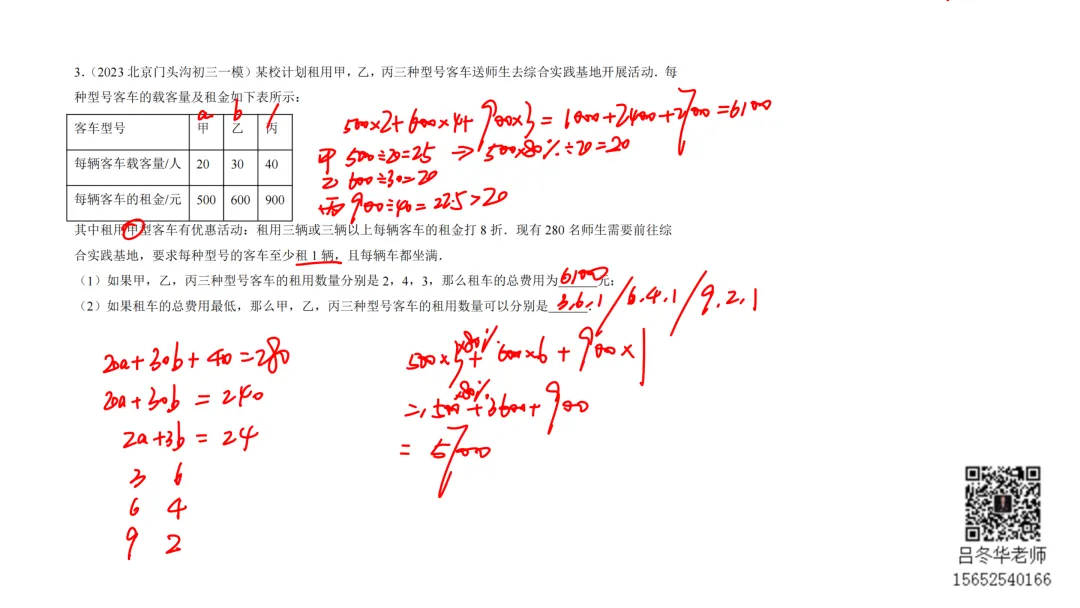 3.（2023 北京门头沟初三一模）某校计划租用甲，乙，丙三种型号客车送师生去综合实践基地开展活动．每
种型号客车的载客量及租金如下表所示：
a b 1
客车型号 甲 乙 丙
每辆客车载客量/人 20 30 40
每辆客车的租金/元 500 600 900
500×2+600×4+900×3=1000+2400+2700=6100
甲 500÷20=25 → 500×80%÷20=20
乙 600÷30=20
丙 900÷40=22.5>20
其中租用甲型客车有优惠活动：租用三辆或三辆以上每辆客车的租金打 8 折．现有 280 名师生需要前往综
合实践基地，要求每种型号的客车至少租 1 辆，且每辆车都坐满．
（1）如果甲，乙，丙三种型号客车的租用数量分别是 2，4，3，那么租车的总费用为6100元；
（2）如果租车的总费用最低，那么甲，乙，丙三种型号客车的租用数量可以分别是3.6.1． /6.4.1 /9.2.1
20a+30b+40=280
20a+30b=240
2a+3b=24
3 6
6 4
9 2
500×3×80%+600×6+900×1
=1500×80%+3600+900
=5700
吕冬华老师
15652540166